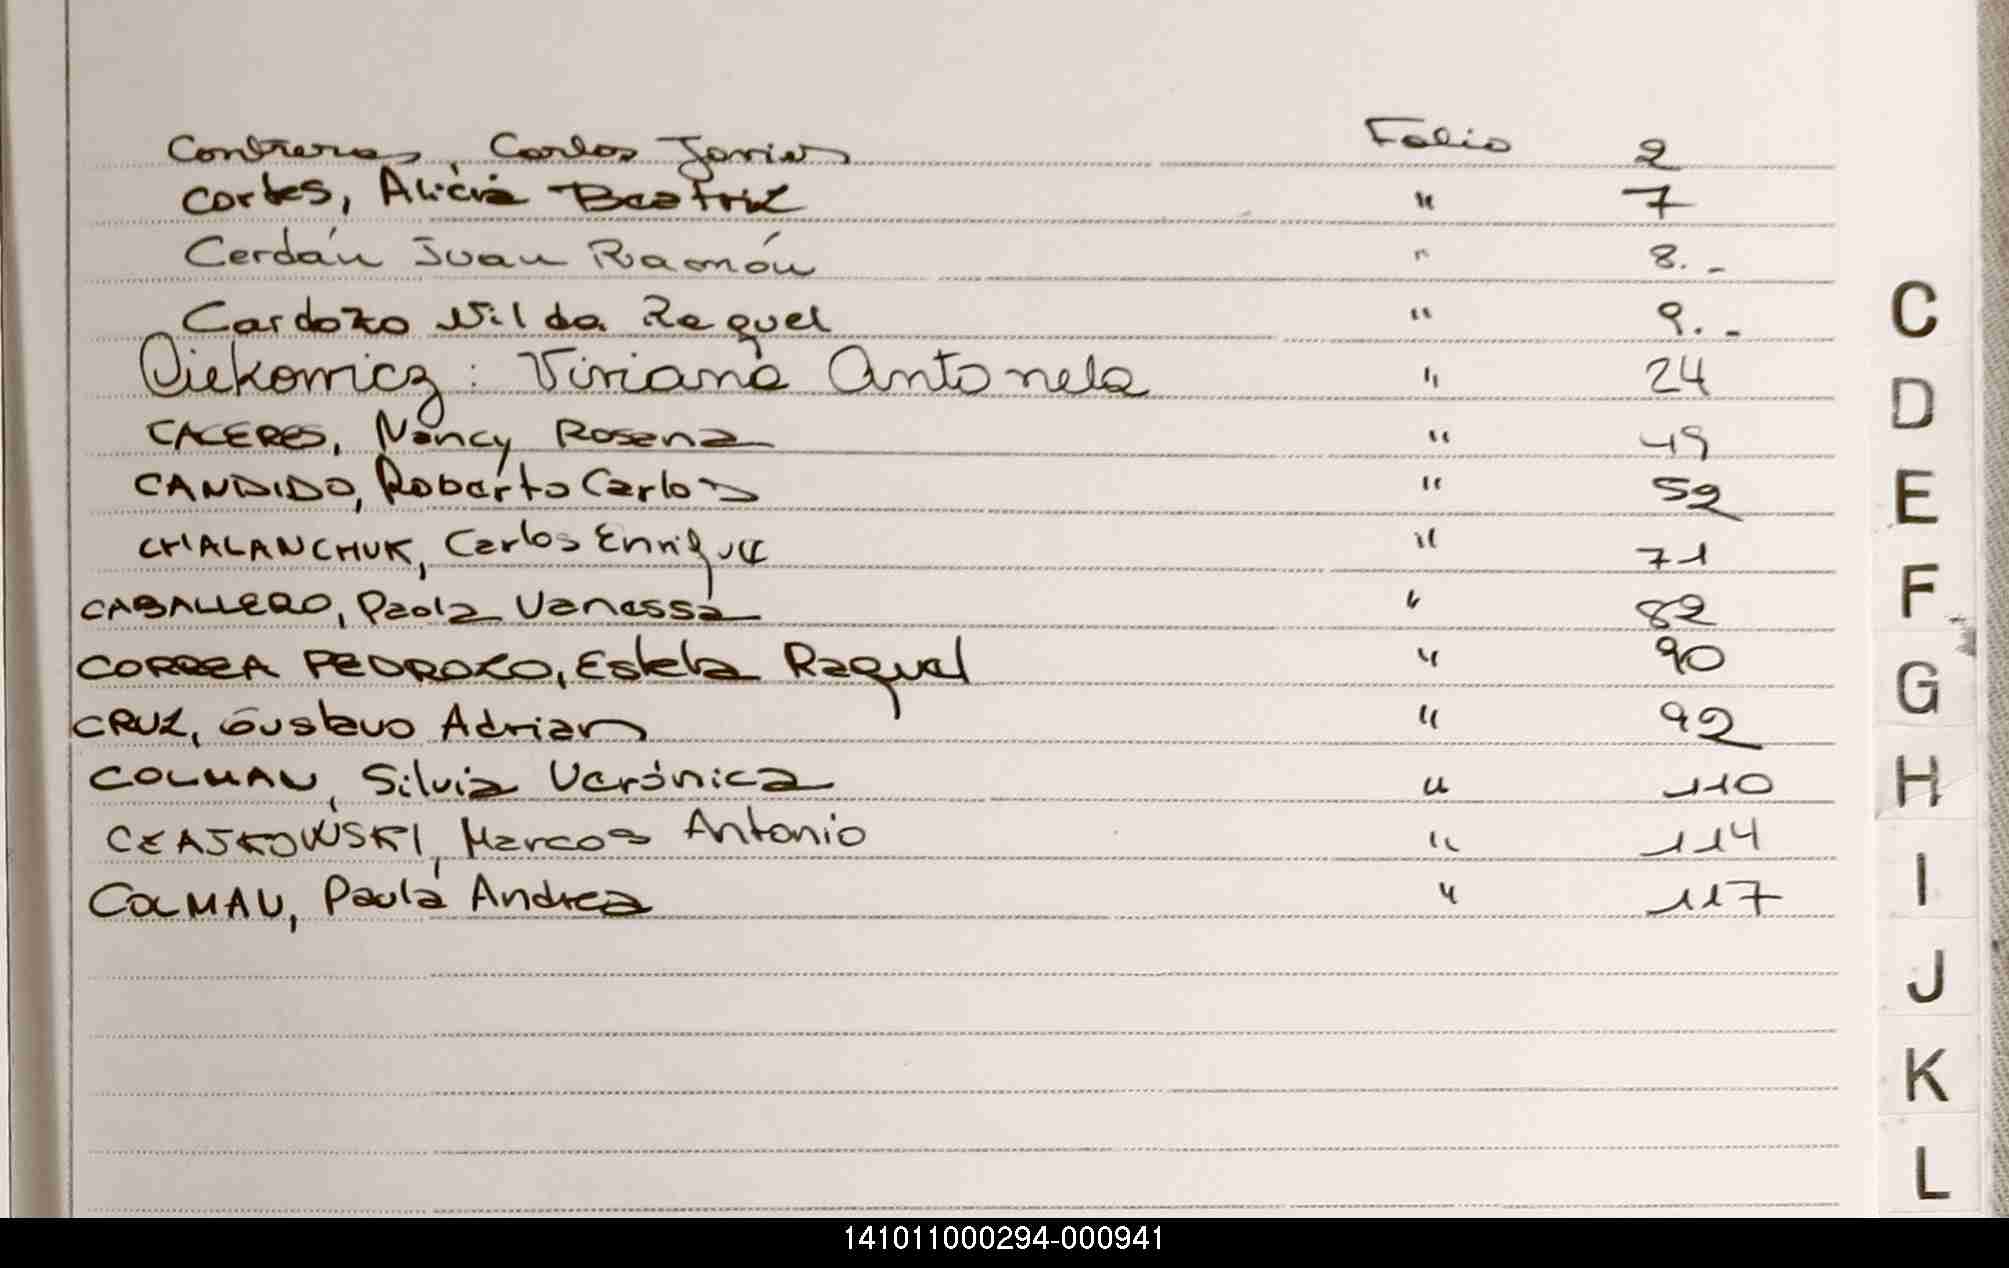 Contreras, Carlos Javier Folio 2
Cortes, Alicia Beatriz " 7
Cerdán Juan Ramón " 8.-
Cardozo Nilda Raquel " 9.-
Ciekowicz: Viviana Antonela " 24
CACERES, Nancy Rosana " 49
CANDIDO, Roberto Carlos " 52
CHALANCHUK, Carlos Enrique " 71
CABALLERO, Paola Vanessa " 82
CORREA PEDROZO, Estela Raquel " 90
CRUZ, Gustavo Adrian " 92
COLMAN, Silvia Verónica " 110
CZAJKOWSKI, Marcos Antonio " 114
COLMAN, Paula Andrea " 117
C
D
E
F
G
H
I
J
K
L
141011000294-000941